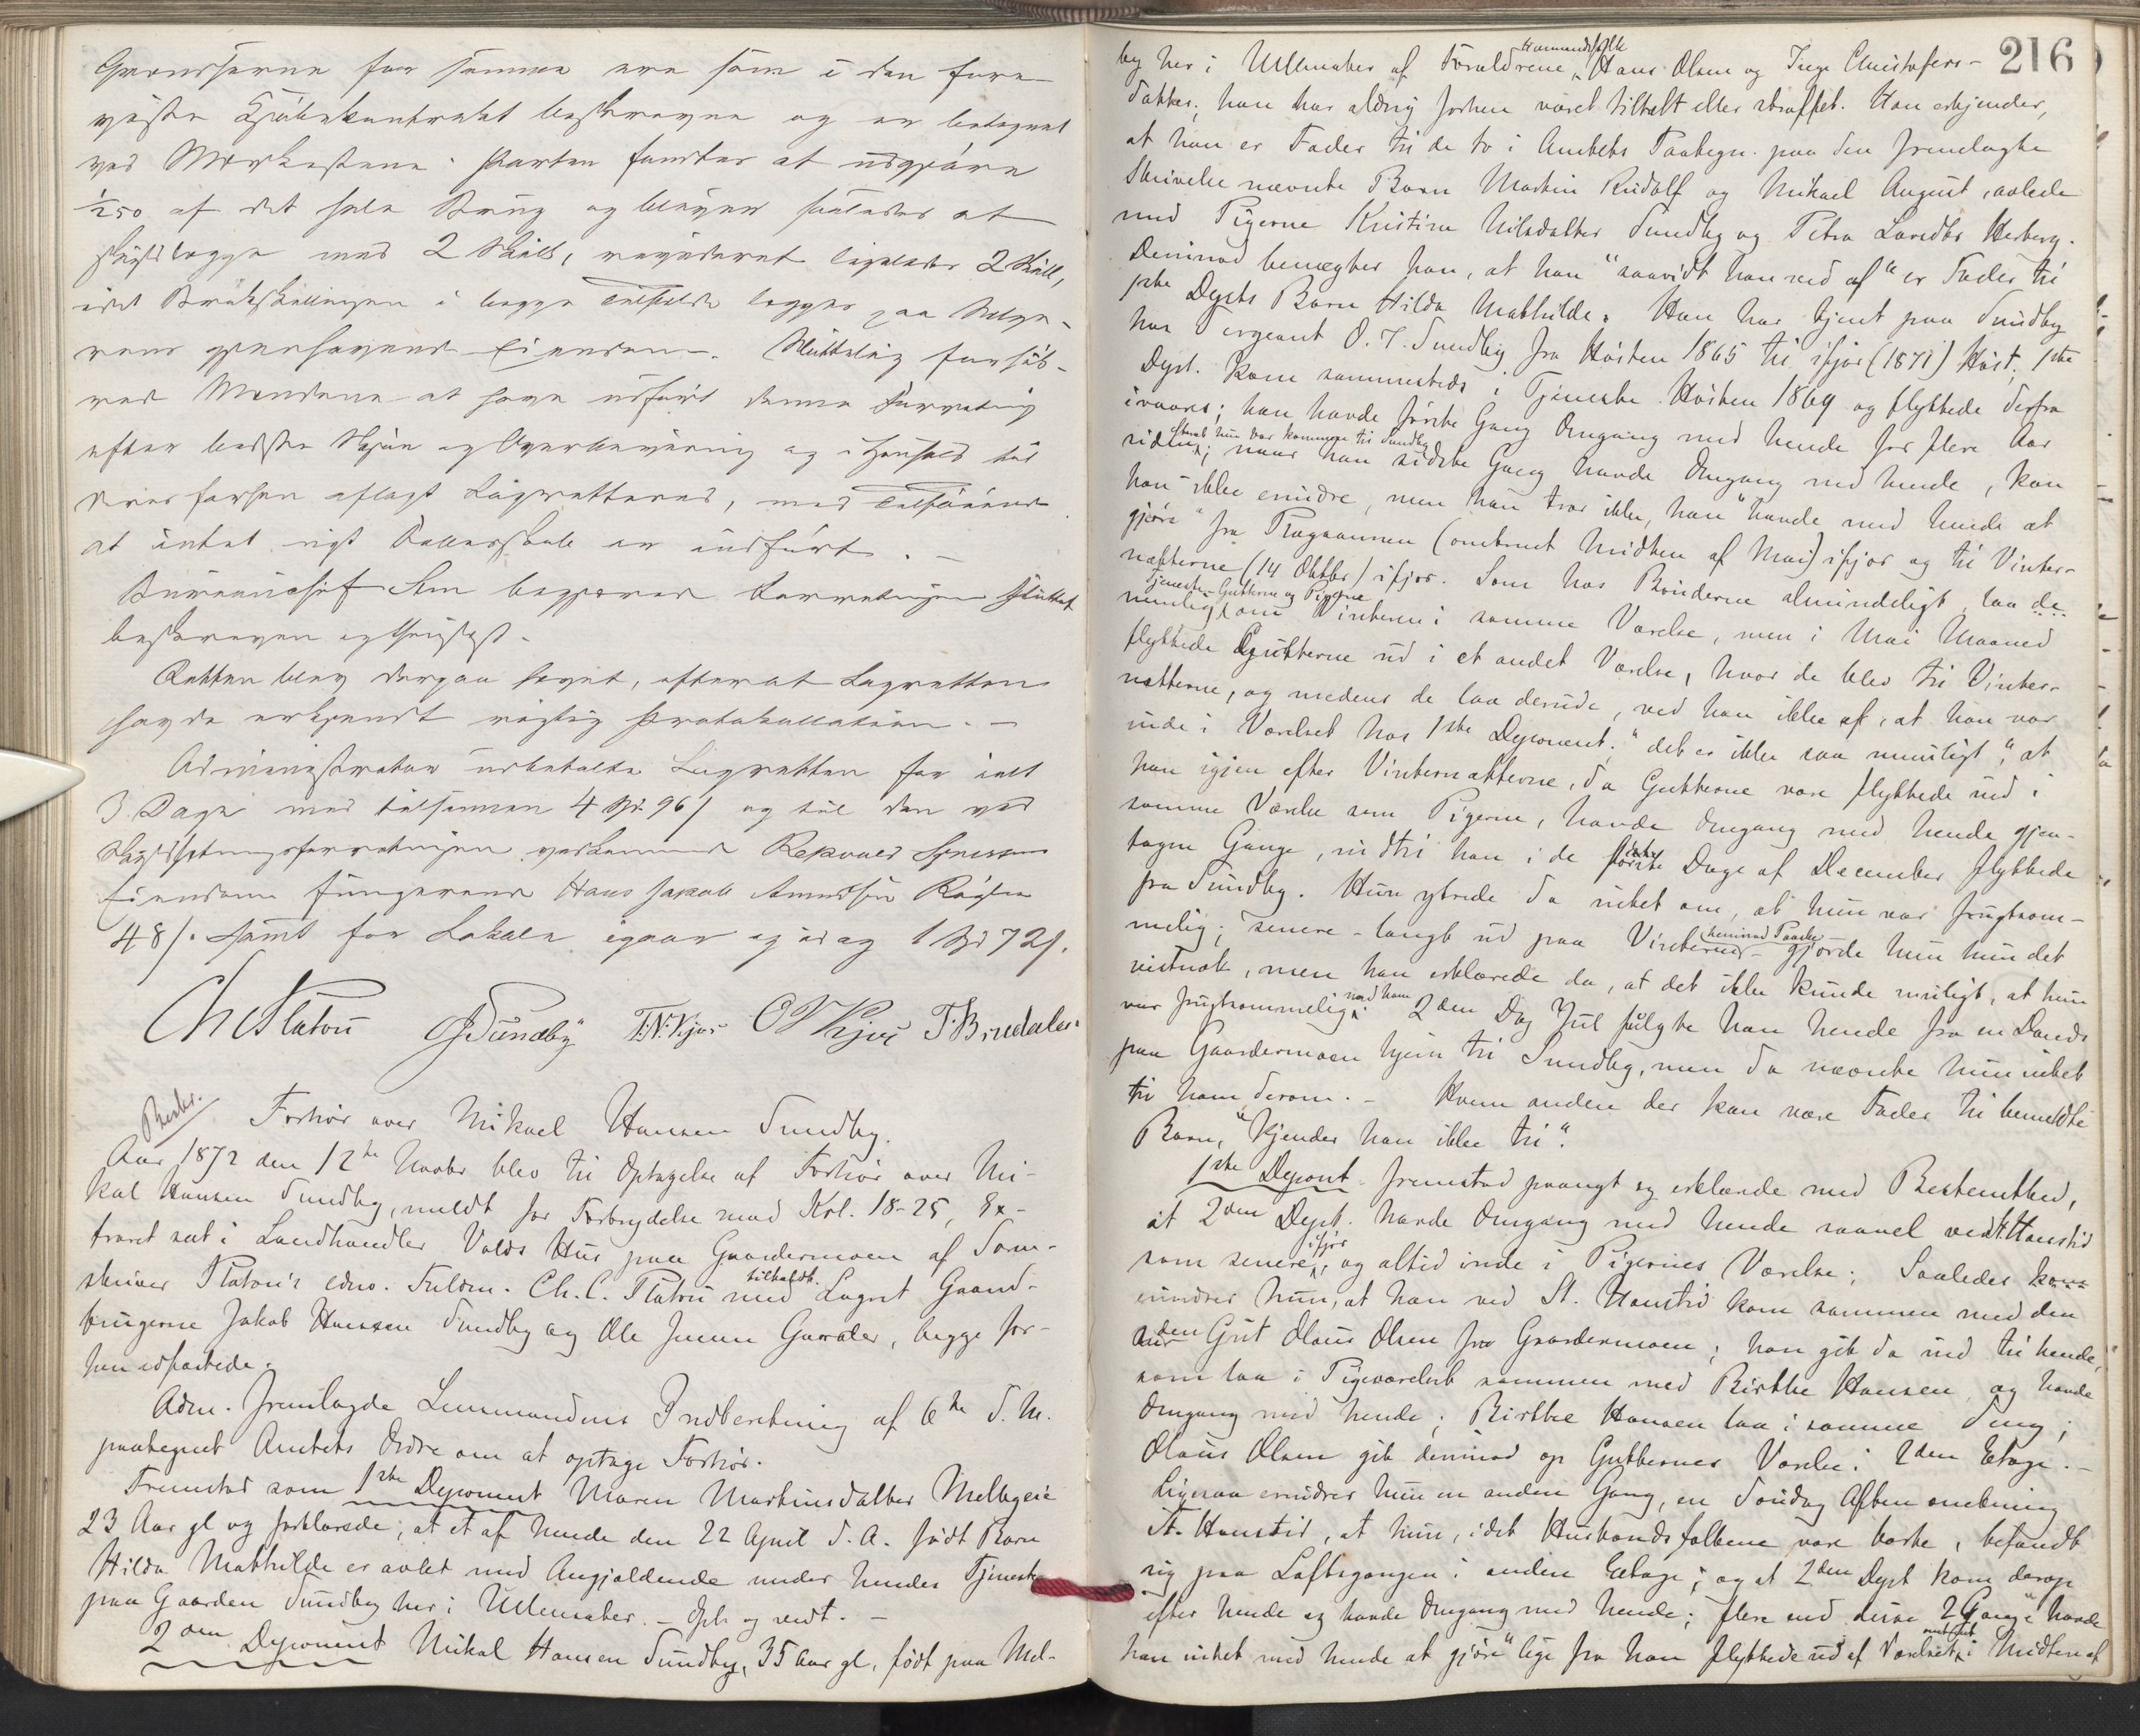 Grændserne for samme ere som i den fore-
viiste Kjøbekontrakt beskrevne og er betegnet
ved Mærkestene. Parten fandtes at udgjøre
1/250 af det hele Brug og bliver saaledes at
skyldlægge med 2 Skill, revideret ligeledes 2 Skill,
idet Brøkskillingen i begge Tilfælde lægges paa Sælge-
rens gjenhavende Eiendom. Sluttelig forsik-
rede Mændene at have udført denne Forretning
efter bedste Skjøn og Overbeviisning og i Henhold til
deres forhen aflagt Lagretteeed, med Tilføiende
at intet nyt Delesskille er indført. —
Bureauchef begjærede Forretningen sluttet
beskreven og thinglæst.
Retten blev derpaa hævet, efterat Lagretten
havde erkjendt rigtig Protokollation. —
Administrator udbetalte Lagretten for ialt
3 Dage med tilsammen 4 Spd. 96 s og til den ved
Skyldsætningsforretningen vedkommende
Eiendom fungerende Hans Jakob Amundsen
48 s. samt for Lokale igaar og idag 1 Spd 72 s.
Ch Platou OJSundby T.N.Kjos O Kjos T. Brudalen
Beskr. Forhør over Mikael Hansen Sundby.
Aar 1872 den 12te Novbr blev til Optagelse af Forhør over Mi-
kal Hansen Sundby, meldt for Forbrydelse mod Krl. 18-25, Ex-
traret sat i Landhandler Volds Hus paa Gaardermoen af Soren-
skriver Platou's edsv. Fuldm. Ch. C. Platou med tilkaldt. Lagret Gaard-
brugerne Jakob Hansen Sundby og Ole Jensen Garder, begge for-
hen edfæstede.
Adm. fremlagde Lensmandens Indberetning af 6te d. M.
paategnet Amtets Ordre om at optage Forhør.
Fremstod som 1ste Deponent Maren Martinsdatter Mellageie
23 Aar gl og forklarede, at et af hende den 22 April d. A. født Barn
Hilda Mathilde er avlet med Angjældende under hendes Tjeneste
paa Gaarden Sundby her i Ullensaker. — Opl. og vedt. —
2den Deponent Mikal Hansen Sundby, 35 Aar gl, født paa Mel-
216
by her i Ullensaker af Forældrene Huusmandsfolk Hans Olsen og Inge Christofers-
datter; han har aldrig forhen været tiltalt eller straffet. Han erkjender,
at han er Fader til de to i Amtets Paategn. paa den fremlagte
Skrivelse nævnte Børn Martin Rudolf og Mikael August, avlede
med Pigerne Kristine Nilsdatter Sundby og Petra Larsdtr Herberg.
Derimod benegter han, at han "saavidt han ved af" er Fader til
1ste Depts Barn Hilda Mathilde. Han har tjent paa Sundby
hos Sergeant O. J. Sundby fra Høsten 1865 til ifjor (1871) Høst; 1ste
Dept. kom sammesteds i Tjeneste Høsten 1869 og flyttede derfra
ivaares; han havde første Gang Omgang med hende for flere Aar
siden, strax hun var kommen til Sundby; naar han sidste Gang havde Omgang med hende, kan
han ikke erindre, men han tror ikke, han "havde med hende at
gjøre" fra Plogaannen (omtrent Midten af Mai) ifjor og til Vinter-
nætterne (14 Oktbr) ifjor. Som hos Bønderne almindeligt, laa de
nemlig Tjeneste-Gutterne og Pigerne om Vinteren i samme Værelse, men i Mai Maaned
flyttede Gutterne ud i et andet Værelse, hvor de blev til Vinter-
nætterne, og medens de laa derude, ved han ikke af, at han var
inde i Værelset hos 1ste Deponent; "det er ikke saa muligt", at
han igjen efter Vinternætterne, da Gutterne vare flyttede ind i
samme Værelse som Pigerne, havde Omgang med hende gjen-
tagne Gange, indtil han i de første Dage af December flyttede
fra Sundby. Hun ytrede da intet om, at hun var frugtsom-
melig; senere - langt ud paa Vinteren henimod Paaske - gjorde hun hun det
vistnok, men han erklærede da, at det ikke kunde muligt, at hun
var frugtsommelig med ham. 2den Dag Jul fulgte han hende fra en Dands
paa Gaardermoen hjem til Sundby, men da nævnte hun intet
til ham derom. — Hvem anden der kan være Fader til bemeldte
Barn, "kjender han ikke til".
1ste Depont. fremstod paanyt og erklærede med Bestemthed,
at 2den Dept. havde Omgang med hende saavel ved St. Hanstid
som senere ifjor, og altid inde i Pigernes Værelse; Saaledes
erindrer hun, at han ved St. Hanstid kom sammen med den
Gut Olaus Olsen fra Gaardermoen; han gik da ind til hende,
som laa i Pigeværelset sammen med Birthe Hansen, og havde
Omgang med hende; Birthe Hansen laa i samme Seng;
Olaus Olsen gik derimod op Gutternes Værelse i 2den Etage. —
Ligesaa erindrer hun en anden Gang, en Søndag Aften omkring
St. Hanstid, at hun, idet Husbondsfolkene vare borte, befandt
sig paa Loftsgangen i anden Etage, og at 2den Dept kom derop
efter hende og havde Omgang med hende; flere end disse 2 Gange "havde
han intet med hende at gjøre" lige fra han flyttede ud af Værelset omtrent i Midten af